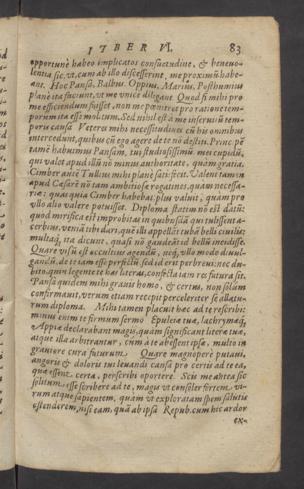 LIBER VI. 83
opportunè habeo implicatos consuetudine, & benevo-
lentia sic, vt, cum ab illo discesserint, me proximũ habe-
ant. Hoc Pansa, Balbus, Oppius, Matius, Posthumius
planè ita faciunt, vt me vnicè diligant. Quod si mihi pro
me efficiendum fuisset, non me pœniteret pro ratione tem-
porum ita esse molitum. Sed nihil est à me inservitũ tem-
poris causâ. Veteres mihi necessitudines cũ his omnibus
intercedunt, quibus cũ ego agere de te nõ destiti. Principẽ
tamẽ habuimus Pansam, tui studiosissimũ, mei cupidũ,
qui valet apud illũ nõ minus authoritate, quàm gratia.
Cimber autẽ Tullius mihi planè satisfecit. Valent tamen
apud Cæsarẽ nõ tam ambitiosæ rogationes, quàm necessa-
riæ: quas quia Cimber habebat, plus valuit, quàm pro
vllo alio valere potuisset. Diploma statim nõ est datũ:
quòd mirifica est improbitas in quibusdã, qui tulissent a-
cerbius, veniã tibi dari, quẽ illi appellãt tubã belli civilis:
multaq́; ita dicunt, quasi nõ gaudeãt id bellũ incidisse.
Quare visũ est occultiùs agendũ, neq́; vllo modo divul-
gandũ, de te iam esse perfectũ. sed id erit perbrevi: nec du-
bito, quin legente te has literas, confecta iam res futura sit.
Pansa quidem mihi gravis homo, & certus, non solùm
confirmavit, verum etiam recepit perceleriter se allatu-
rum diploma. Mihi tamen placuit hæc ad te rescribi:
minus enim te firmum sermo Epuleiæ tuæ, lacrymæq́;
Appiæ declarabant magis, quàm significant literæ tuæ,
atque illa arbitrantur, cum à te abessent ipsæ, multo in
graviore cura futurum. Quare magnoperè putavi,
angoris & doloris tui levandi causa pro certis ad te ea,
quæ essent certa, perscribi oportere. Scis me antea sic
solitum esse scribere ad te, magis vt consolarer fortem vi-
rum atque sapientem, quàm vt exploratam spem salutis
ostenderem, nisi eam, quã ab ipsâ Repub. cum hic ardor
ex-